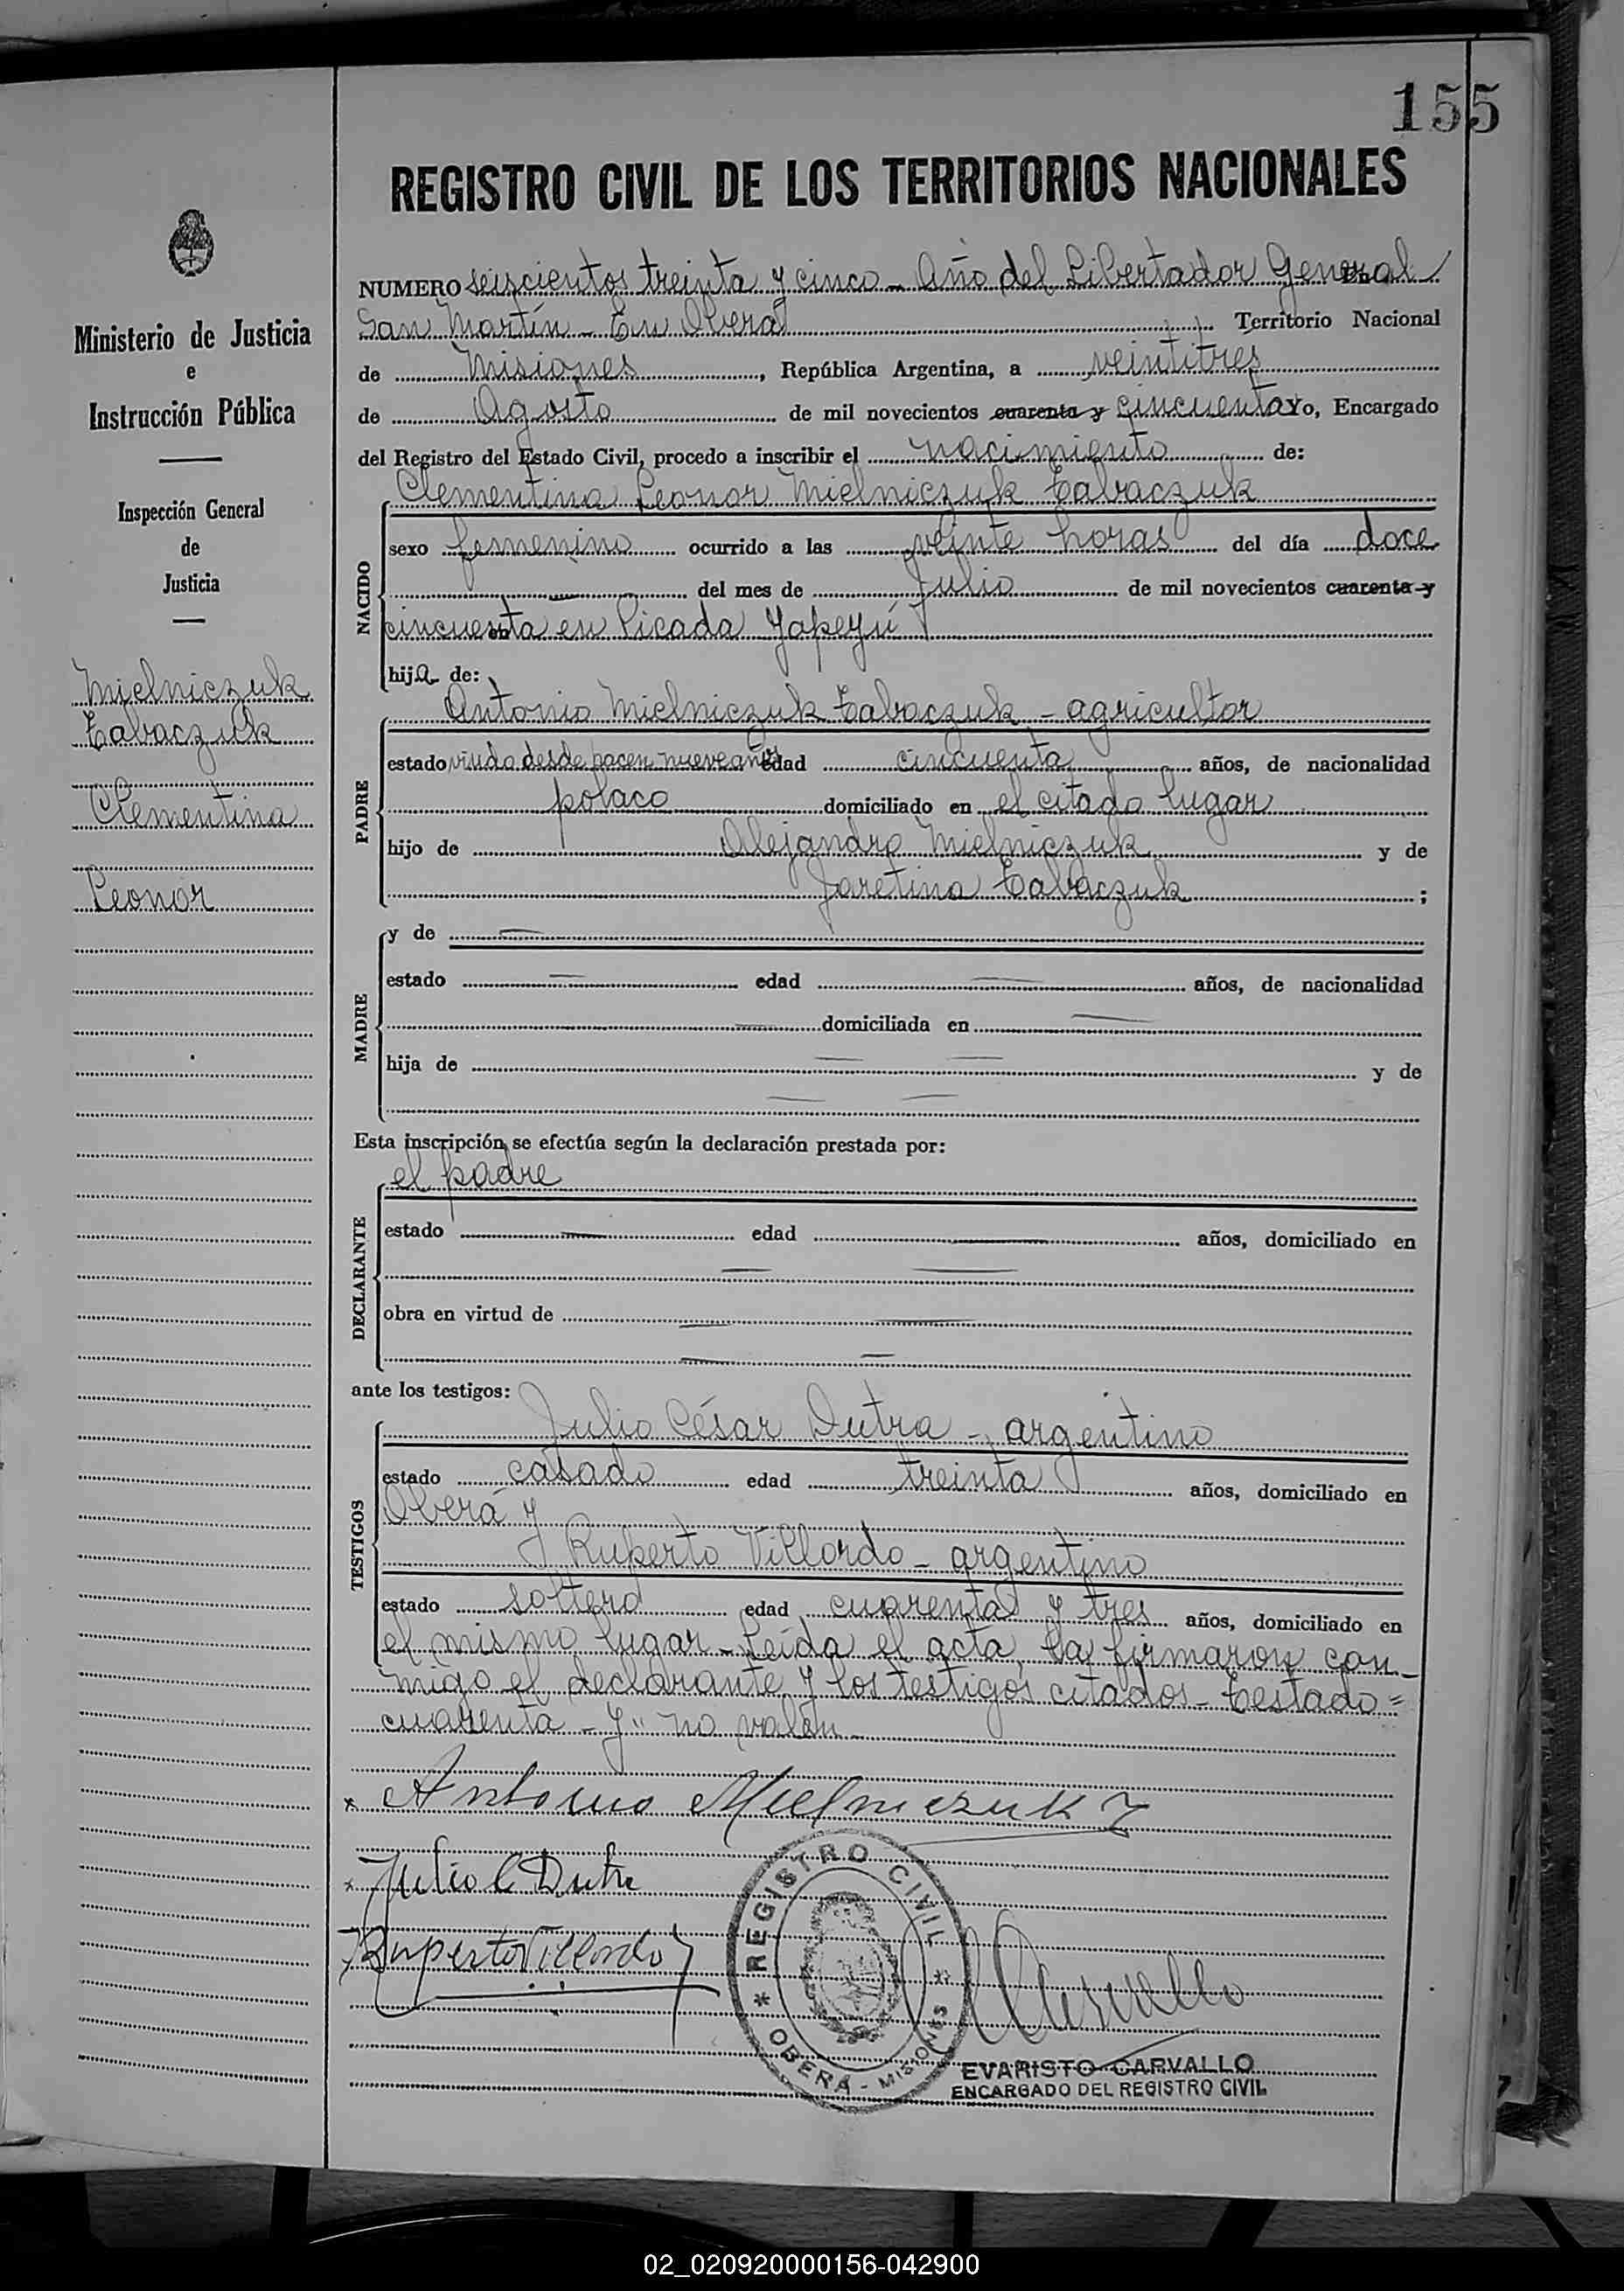 155
REGISTRO CIVIL DE LOS TERRITORIOS NACIONALES
Ministerio de Justicia
e
Instrucción Pública
Inspección General
de
Justicia
Mielniczuk
Tabaczuk
Clementina
Leonor
NUMERO seiscientos treinta y cinco - Año del Libertador General
San Martín - En Oberá Territorio Nacional
de Misiones, República Argentina, a veintitres
de Agosto de mil novecientos cuarenta y cincuenta Yo, Encargado
del Registro del Estado Civil, procedo a inscribir el nacimiento de:
NACIDO
Clementina Leonor Mielniczuk Tabaczuk
sexo femenino ocurrido a las veinte horas del día doce
del mes de Julio de mil novecientos cuarenta y
cincuenta en Picada Yapeyú
hija de:
PADRE
Antonio Mielniczuk Tabaczuk - agricultor
estado viudo desde hacen nueve años edad cincuenta años, de nacionalidad
polaco domiciliado en el citado lugar
hijo de Alejandro Mielniczuk y de
Jaretina Tabaczuk ;
MADRE
y de
estado edad años, de nacionalidad
domiciliada en
hija de y de
Esta inscripción se efectúa según la declaración prestada por:
DECLARANTE
el padre
estado edad años, domiciliado en
obra en virtud de
ante los testigos:
TESTIGOS
Julio César Dutra - argentino
estado casado edad treinta años, domiciliado en
Oberá y
Ruperto Villordo - argentino
estado soltero edad cuarenta y tres años, domiciliado en
el mismo lugar - Leída el acta, la firmaron con-
migo el declarante y los testigos citados - Testado=
cuarenta - y" no valen
x Antonio Mielniczuk
x Julio C Dutra
Ruperto Villordo
REGISTRO CIVIL
* OBERÁ - MISIONES *
Carvallo
EVARISTO CARVALLO
ENCARGADO DEL REGISTRO CIVIL
02_020920000156-042900